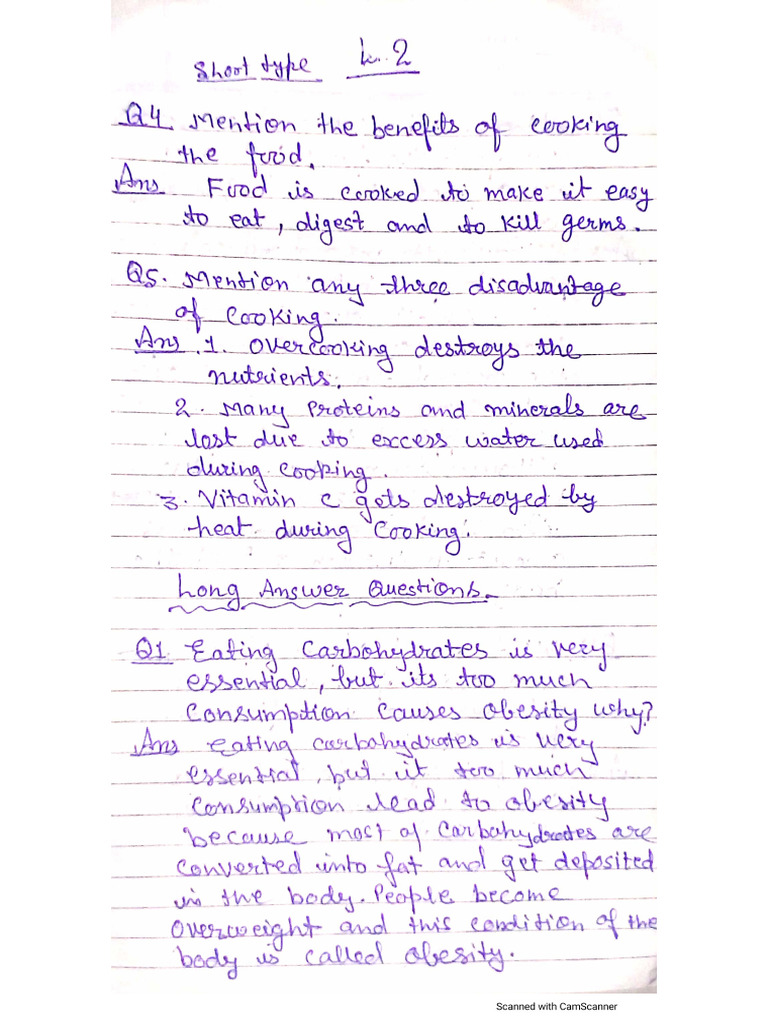 Short type L.2
Q4 Mention the benefits of cooking
the food.
Ans Food is cooked to make it easy
to eat, digest and to kill germs.
Q5. Mention any three disadvantage
of cooking.
Ans. 1. Overcooking destroys the
nutrients.
2. Many Proteins and minerals are
lost due to excess water used
during cooking.
3. Vitamin C gets destroyed by
heat during Cooking.
Long Answer Questions.
Q1 Eating Carbohydrates is very
essential, but its too much
Consumption causes obesity why?
Ans Eating carbohydrates is very
essential, but it too much
Consumption lead to obesity
because most of Carbohydrates are
converted into fat and get deposited
in the body. People become
overweight and this condition of the
body is called obesity.
Scanned with CamScanner